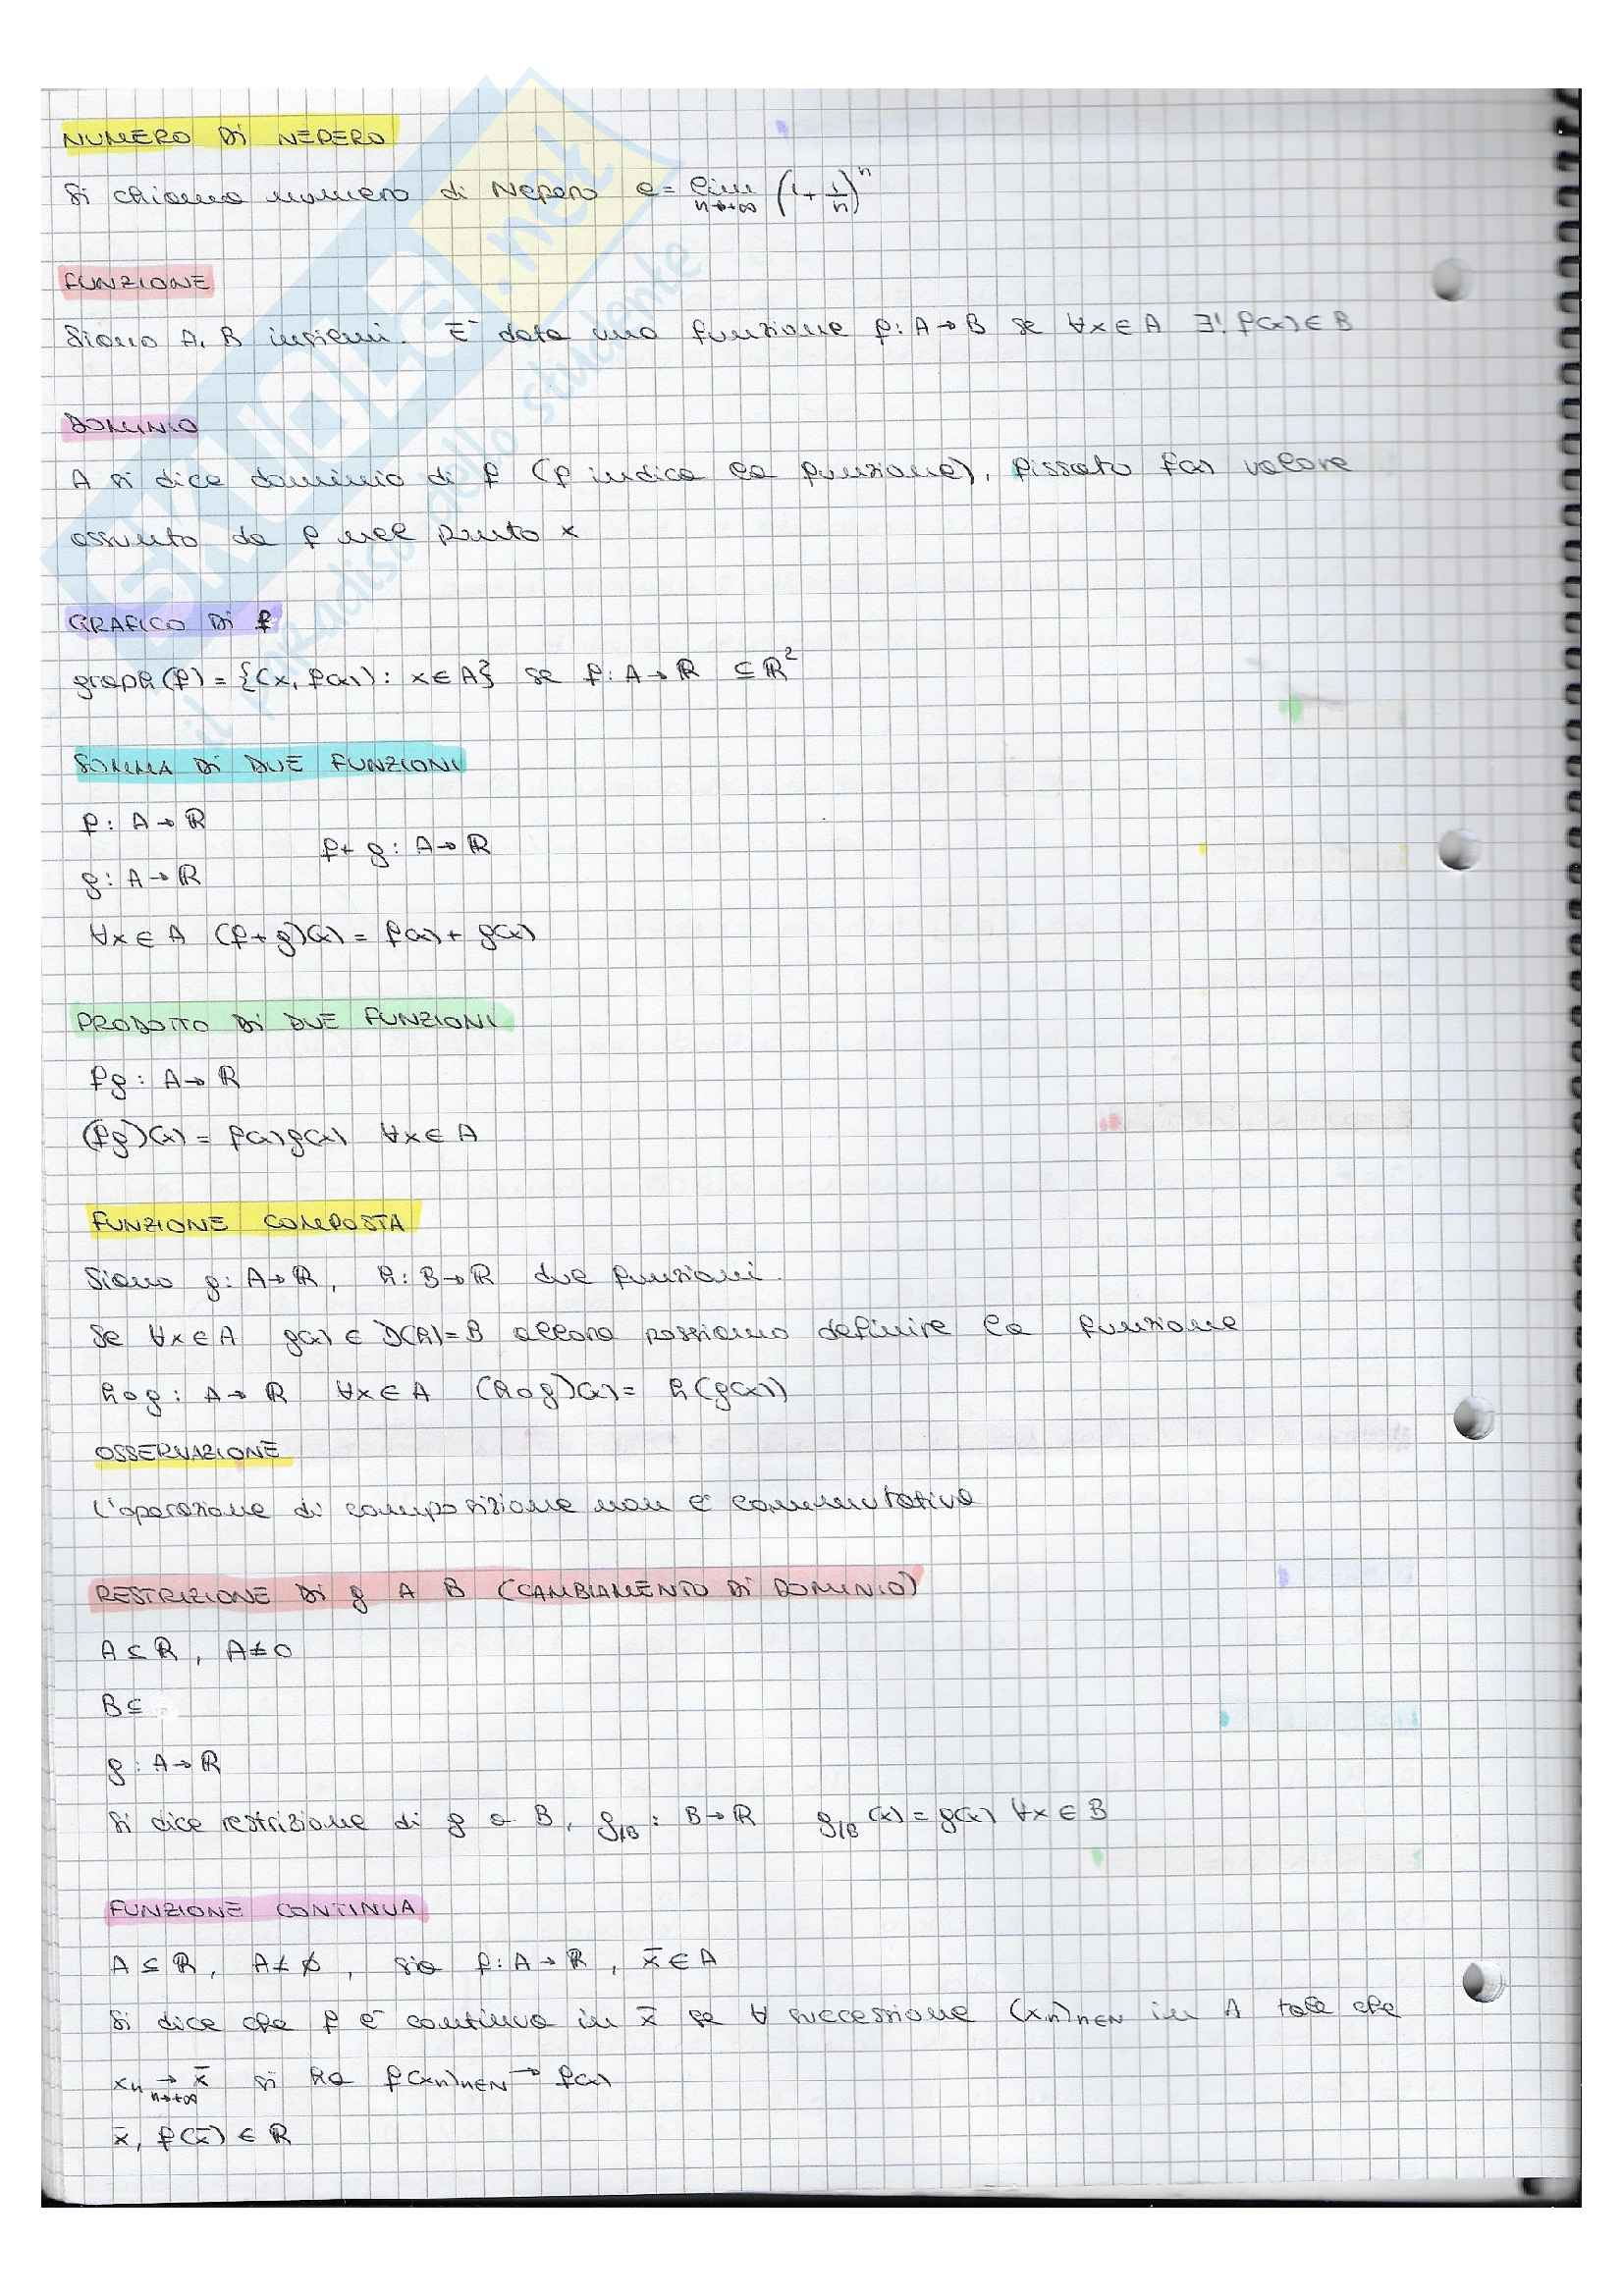 NUMERO DI NEPERO
Si chiama numero di Nepero e = lim n→+∞ (1 + 1/n)^n
FUNZIONE
Siano A, B insiemi. È data una funzione f: A → B se ∀x ∈ A ∃! f(x) ∈ B
DOMINIO
A si dice dominio di f (f indica la funzione), fissato f(x) valore
assunto da f nel punto x
GRAFICO DI f
graph(f) = {(x, f(x)) : x ∈ A} se f: A → ℝ ⊆ ℝ²
SOMMA DI DUE FUNZIONI
f: A → ℝ
f + g : A → ℝ
g: A → ℝ
∀x ∈ A (f + g)(x) = f(x) + g(x)
PRODOTTO DI DUE FUNZIONI
fg : A → ℝ
(fg)(x) = f(x)g(x) ∀x ∈ A
FUNZIONE COMPOSTA
Siano g: A → ℝ, h: B → ℝ due funzioni.
Se ∀x ∈ A g(x) ∈ D(h) = B allora possiamo definire la funzione
h∘g : A → ℝ ∀x ∈ A (h∘g)(x) = h(g(x))
OSSERVAZIONE
L'operazione di composizione non è commutativa
RESTRIZIONE DI g A B (CAMBIAMENTO DI DOMINIO)
A ⊆ ℝ, A ≠ 0
B ⊆
g : A → ℝ
Si dice restrizione di g a B, g|B : B → ℝ g|B (x) = g(x) ∀x ∈ B
FUNZIONE CONTINUA
A ⊆ ℝ, A ≠ ∅, sia f: A → ℝ, x̄ ∈ A
Si dice che f è continua in x̄ se ∀ successione (xn)n∈N in A tale che
xn → x̄ n→+∞ si ha f(xn)n∈N → f(x)
x̄, f(x̄) ∈ ℝ
SKUOLA.net
il paradiso dello studente